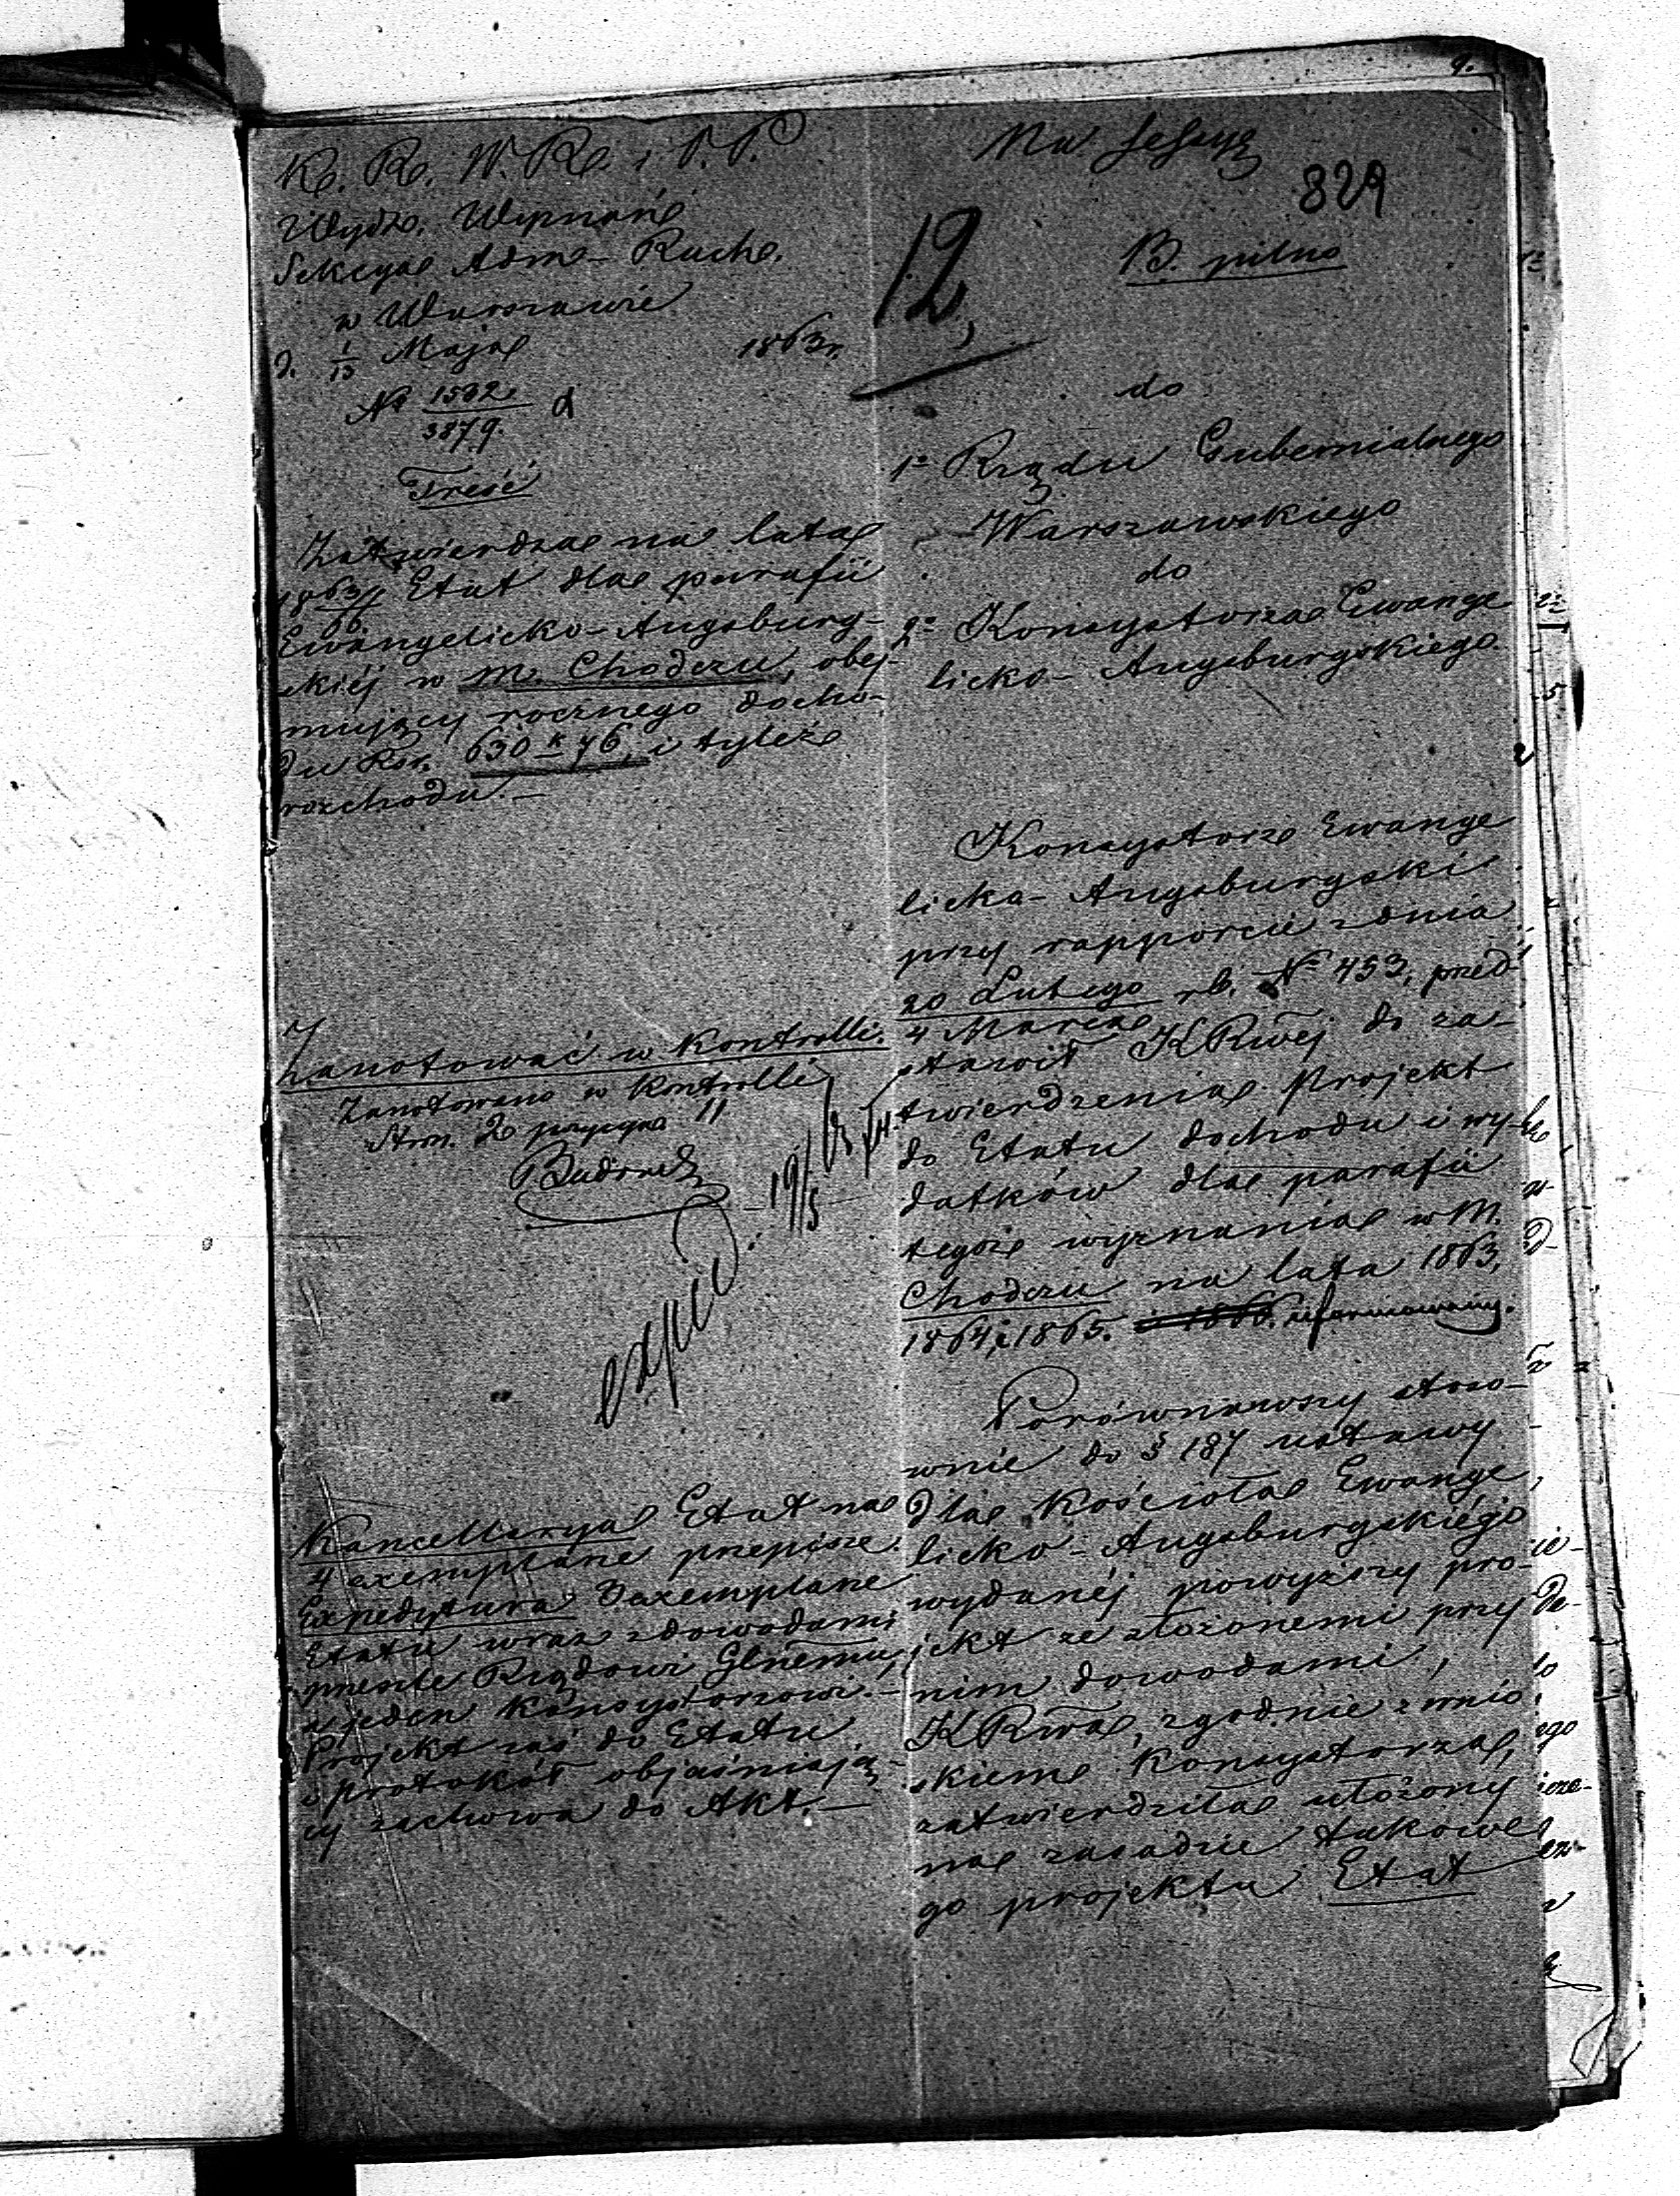 K. R. W. R. i O. P.
Wydz. Wyznań
Sekcya Adm- Rach.
w Warszawie
d. 1/13 Maja 1863 r.
№ 1592/3879.
Treść
Zatwierdza na lata
1863/66 Etat dla parafii
Ewangelicko-Augsburg-
skiéj w m. Chodczu, obej-
mujący rocznego docho-
du Rsr. 630 k 76, i tyleż
rozchodu.—
Zanotować w Kontrolli.
Zanotowano w Kontrolli
Str. 20 pozycya 11
expied. 19/5 63
Kancellarya Etat na
4 exemplarze przepisze.
Expedytura 3 exemplarze
Etatu wraz z dowodami
prześle Rządowi Glnemu,
a jeden Konsystorzowi.—
Projekt zaś do Etatu
i protokół objaśniają-
cy zachowa do Akt.—
Na Sessyę
829
12,
B. pilno
do
1º Rządu Gubernialnego
Warszawskiego
do
2º Konsystorza Ewange
licko-Augsburgskiego.
Konsystorz Ewange
licko-Augsburgski
przy rapporcie z dnia
20 Lutego/4 Marca rb. № 453, przed
stawił KRwéj do za-
twierdzenia Projekt
do Etatu dochodu i wy-
datków dla parafii
tegoż wyznania w M.
Chodczu na lata 1863,
1864, i 1865. i 1866. uformowany.
Porównawszy stoso-
wnie do § 187 ustawy
dla Kościoła Ewange
licko-Augsburgskiégo
wydanéj powyższy pro-
jekt ze złożonemi przy
nim dowodami,
KRwa, zgodnie z wnio
skiem Konsystorza,
zatwierdziła ułożony
na zasadzie takowe
go projektu Etat